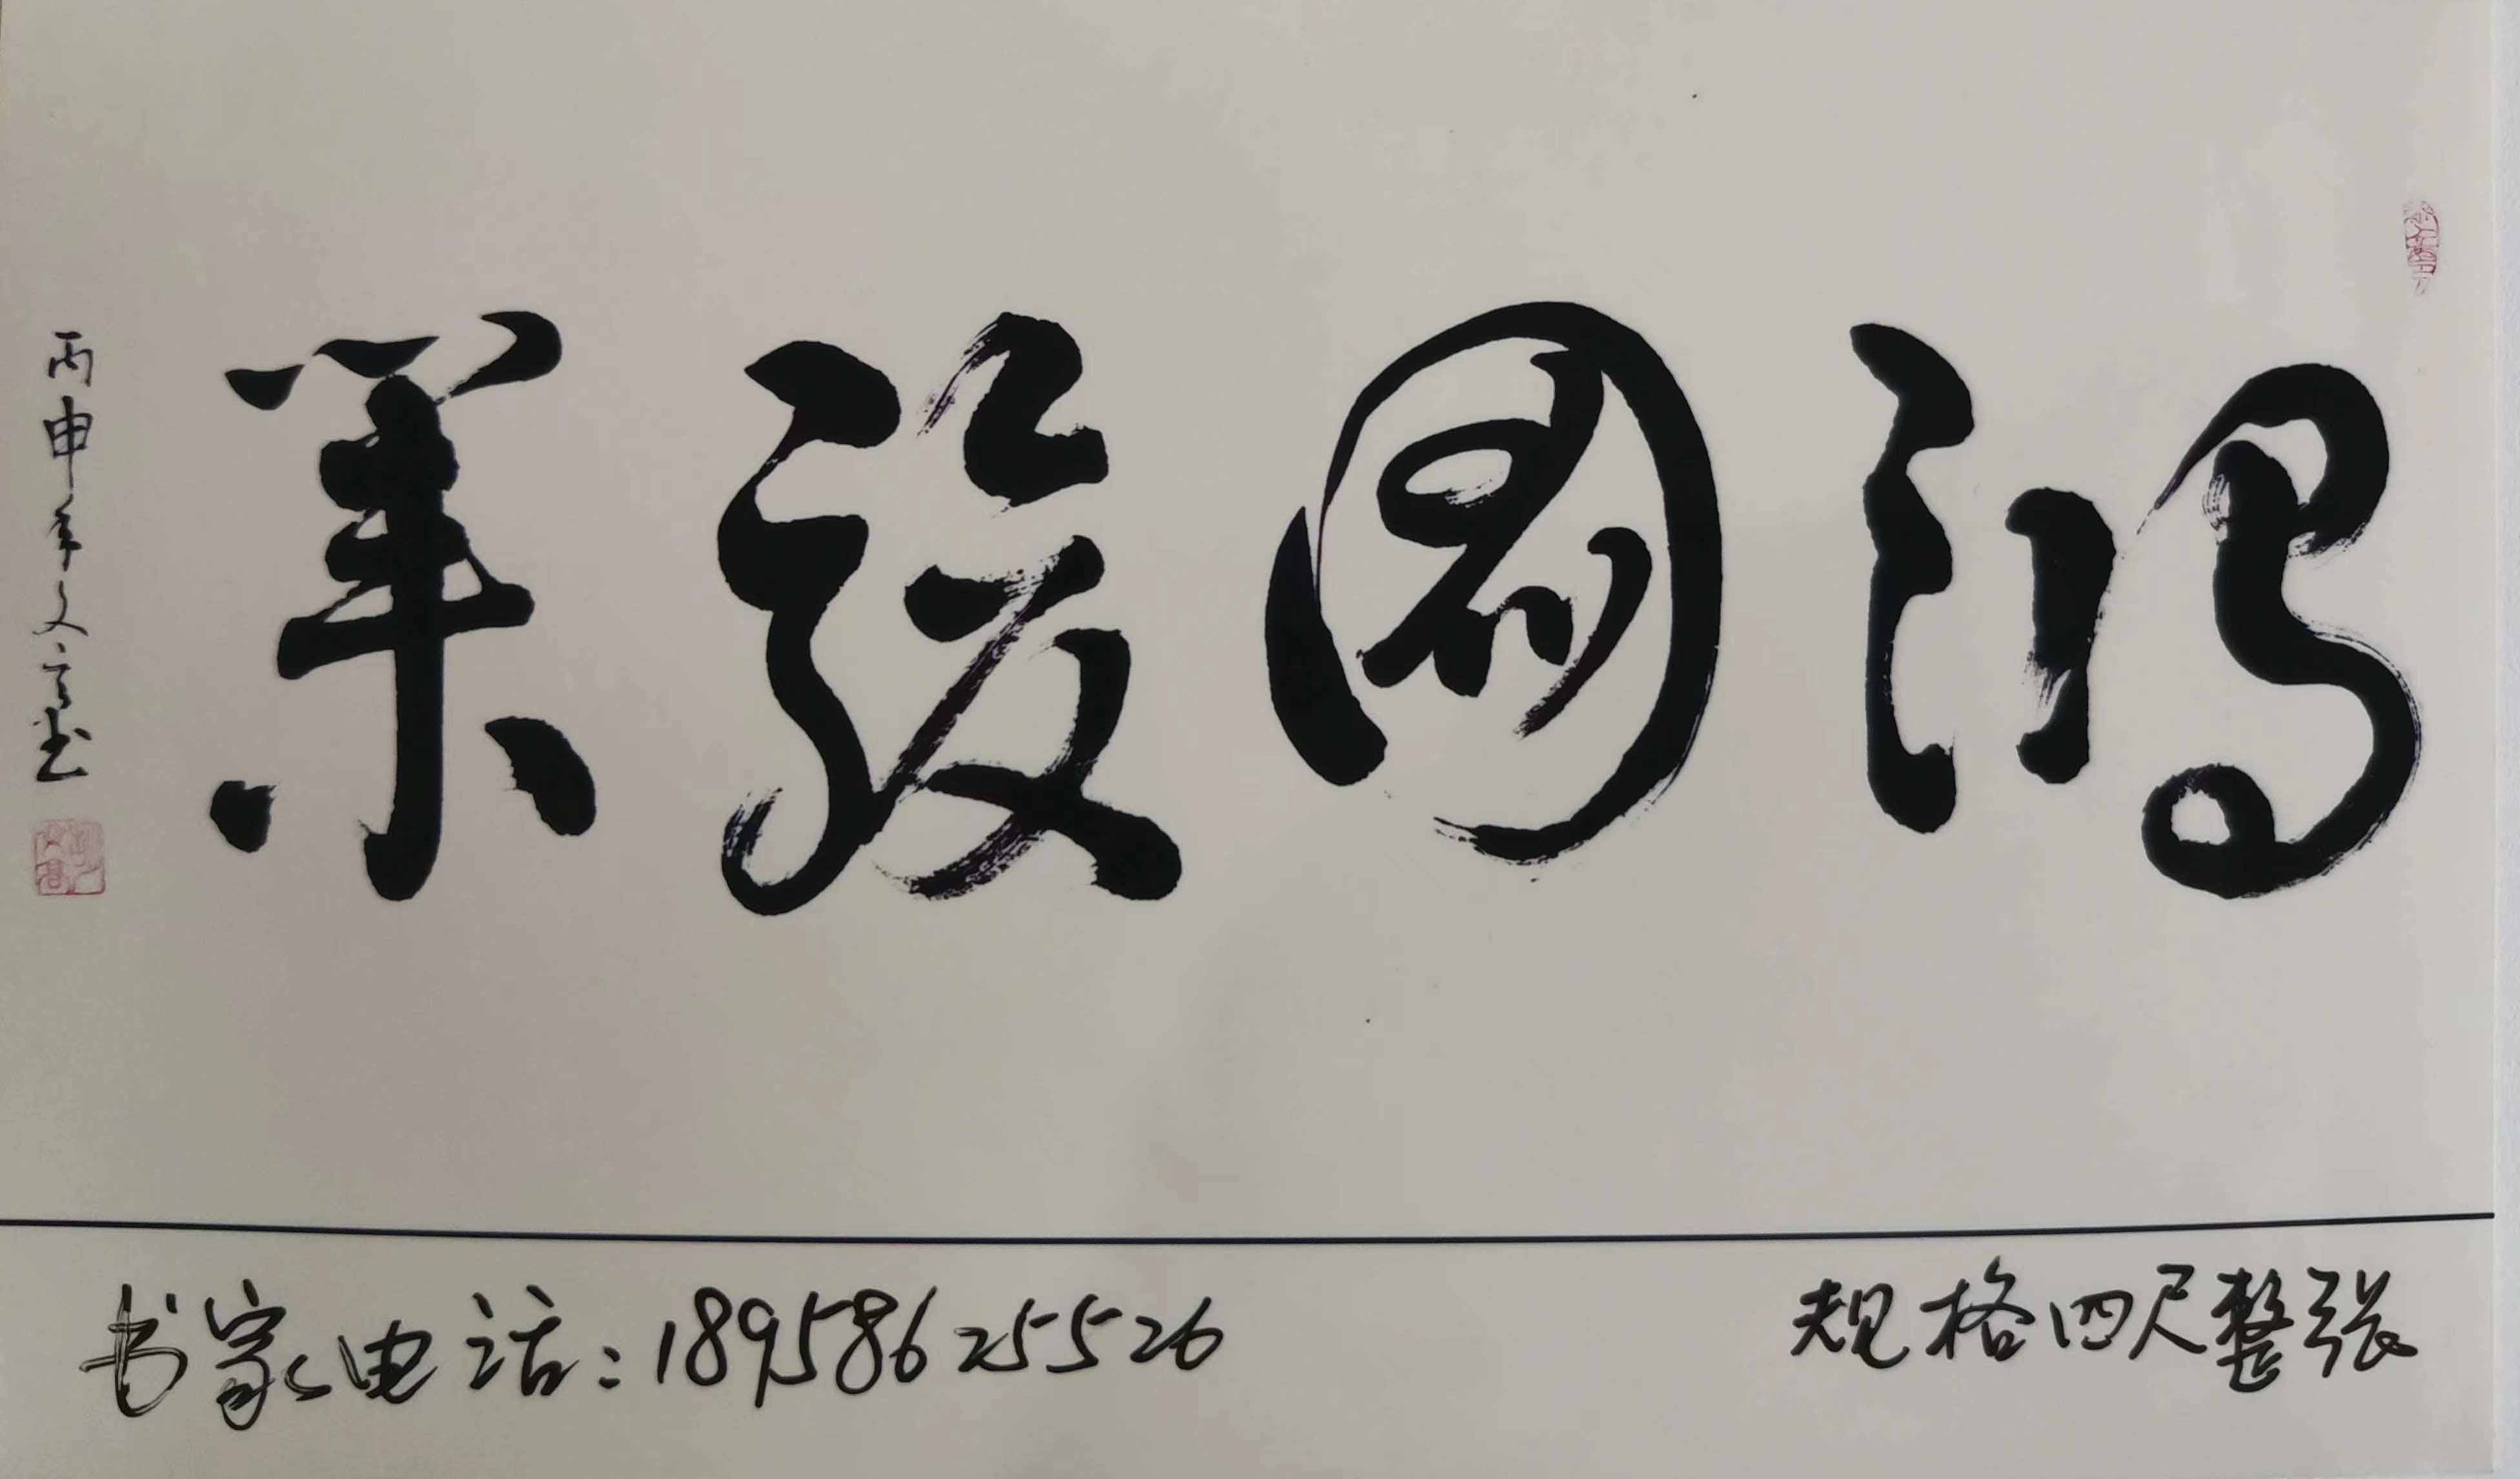 鸿图骏业
丙申年文高书
规格四尺整张
书家电话：18958625526